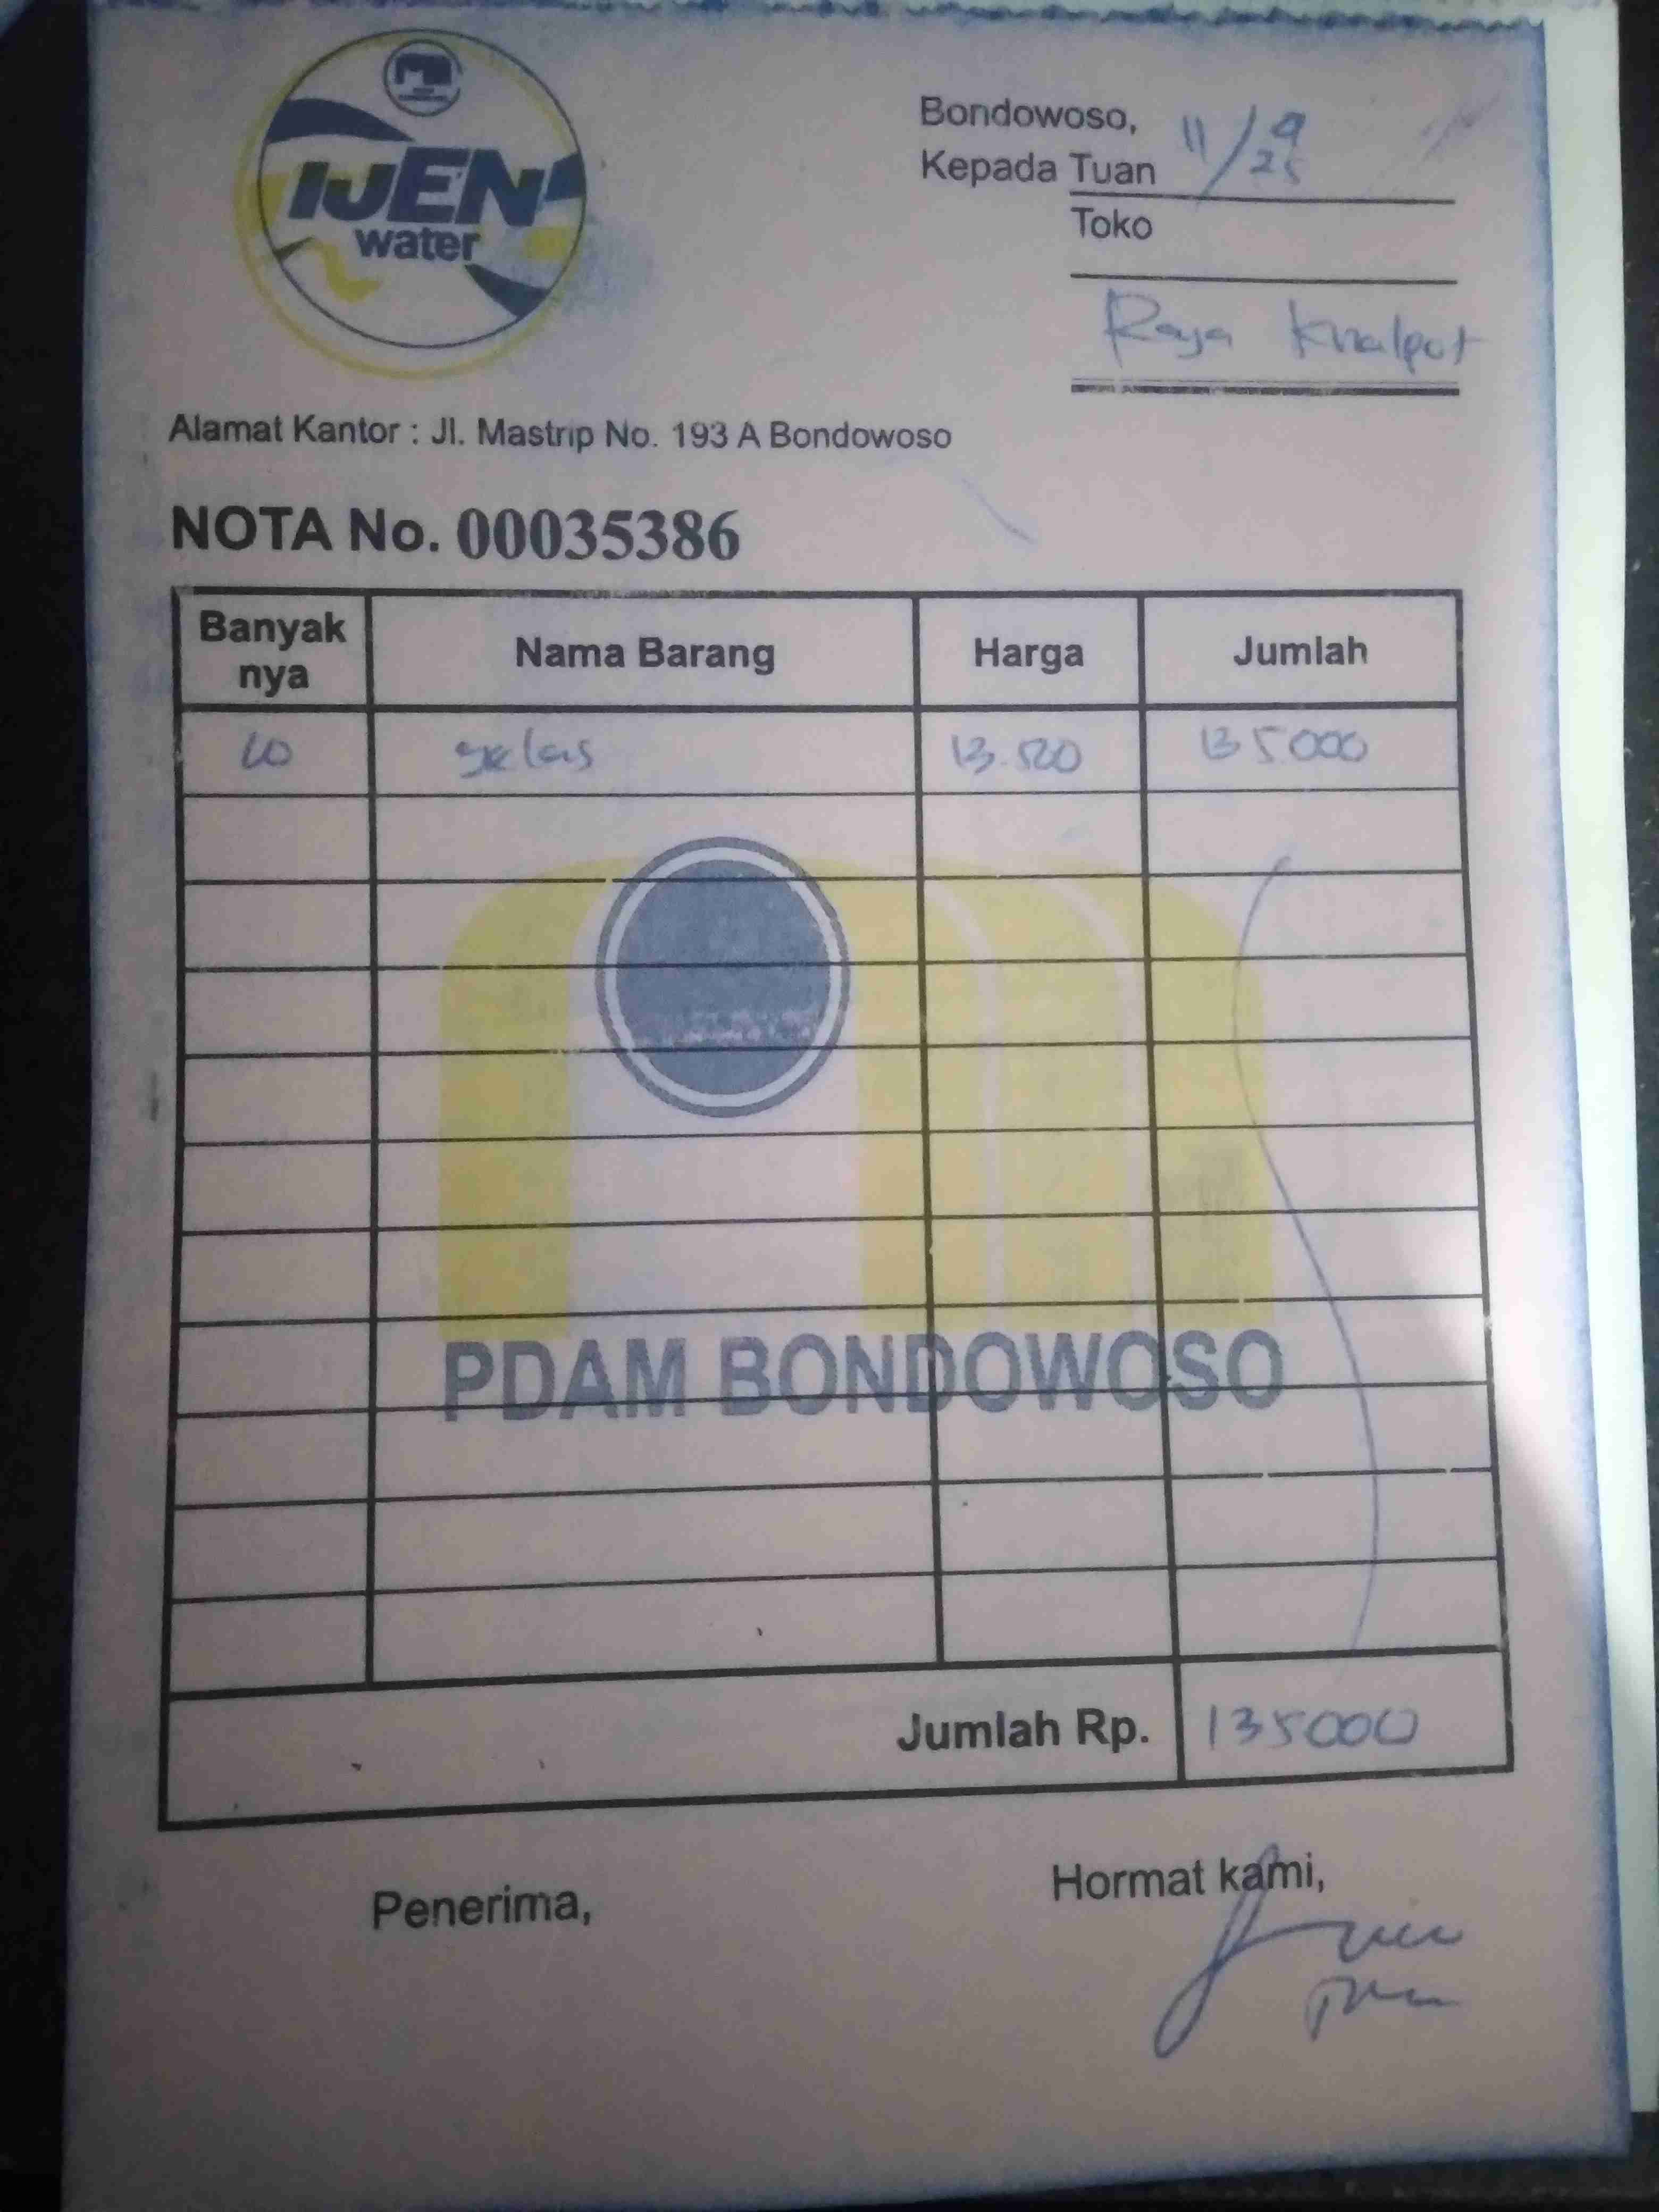 IJEN
water
Bondowoso, 11/9 25
Kepada Tuan
Toko
Raja Knalpot
Alamat Kantor : Jl. Mastrip No. 193 A Bondowoso
NOTA No. 00035386
Banyak nya Nama Barang Harga Jumlah
10 gelas 13.500 135000
PDAM BONDOWOSO
Jumlah Rp. 135000
Penerima,
Hormat kami,